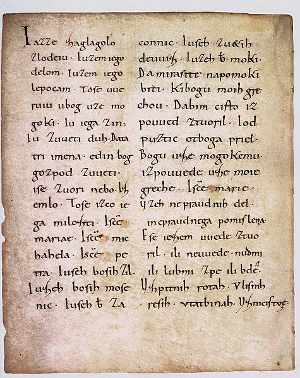 Iazze zaglagolo
zlodeiu. Iuzem iego
delom. Iuzem iego
lepocam. Tose uue
ruiu ubog uze mo
goki. Iu iega zin.
Iu zuueti duh. Data
tri imena. edin bog
gozpod zuueti.
ise zuori nebo.
emlo. Tose izco ie
ga miloſti. Iſcē
mariae. Iſcē mic
hahela. Iſcē pe
tra. Iuſeh boſih zil
Iuzeh boſih moſe
nic. Iuſeh bo za
connic. Iuſeh zu&ih
deuuiz. Iuzeh bo moki.
Da miraſite napomoki
biti. Kibogu moih gre
chou. Dabim ciſto iz
pouued ztuoril. Iod
puztic otboga priel.
Bogu uze mogokemu
izpouuede uze moie
greche. Iſcē marie.
uzeh nepraudnih del.
inepraudnega pomiſlena.
Eſe iezem uuede ztuo
ril. ili neuuede. nudmi
ili lubmi zpe. ili bdē.
Uzpitnih rotah. Vliſnih
reſih. Vtatbinah. Uznicistve